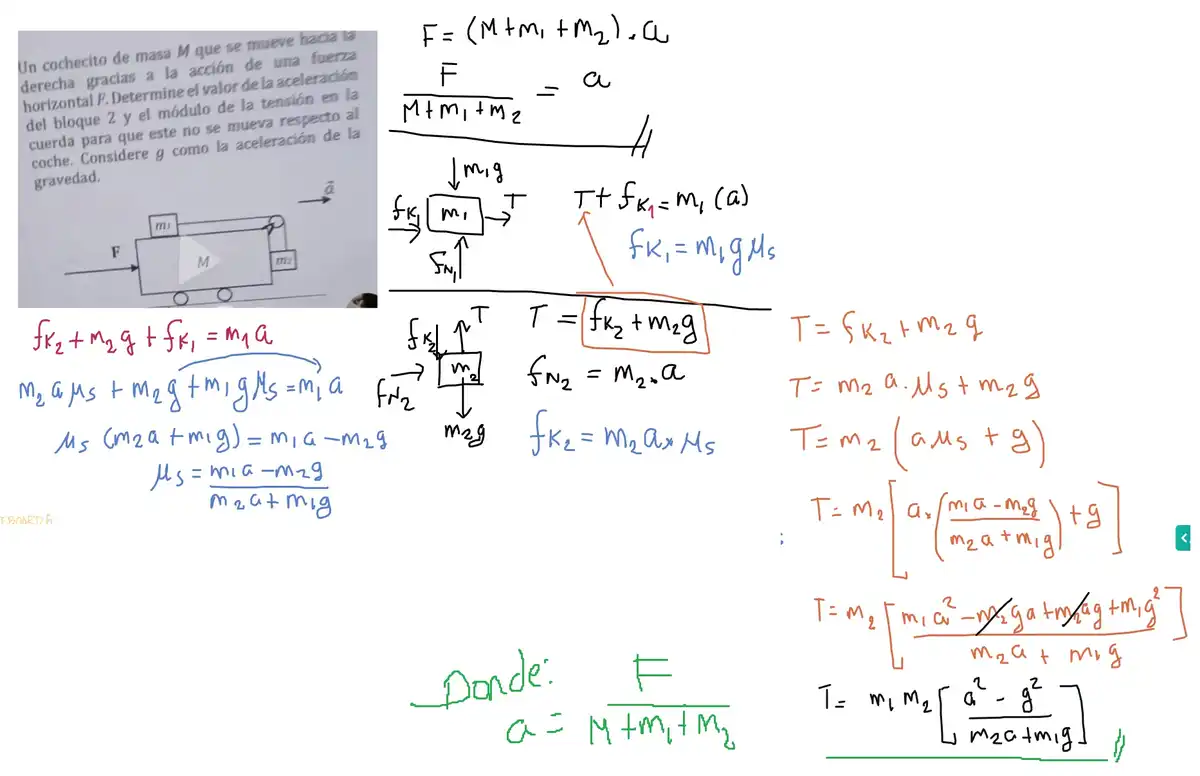 Un cochecito de masa M que se mueve hacia la
derecha gracias a la acción de una fuerza
horizontal F. Determine el valor de la aceleración
del bloque 2 y el módulo de la tensión en la
cuerda para que este no se mueva respecto al
coche. Considere g como la aceleración de la
gravedad.
a⃗
m₁
F
M
m₂
F = (M+m₁+m₂).a
F/(M+m₁+m₂) = a
m₁g
fK₁ m₁ T
fN₁
T + fK₁ = m₁(a)
fK₁ = m₁gμs
fK₂ T
fN₂ m₂
m₂g
T = fK₂ + m₂g
fN₂ = m₂.a
fK₂ = m₂a×μs
fK₂ + m₂g + fK₁ = m₁a
m₂aμs + m₂g + m₁gμs = m₁a
μs (m₂a + m₁g) = m₁a − m₂g
μs = (m₁a − m₂g)/(m₂a + m₁g)
T = fK₂ + m₂g
T = m₂a.μs + m₂g
T = m₂(aμs + g)
T = m₂[a×((m₁a − m₂g)/(m₂a + m₁g)) + g]
T = m₂[(m₁a² − m₂ga + m₂ag + m₁g²)/(m₂a + m₁g)]
T = m₁m₂[(a² − g²)/(m₂a + m₁g)]
Donde:
a = F/(M+m₁+m₂)